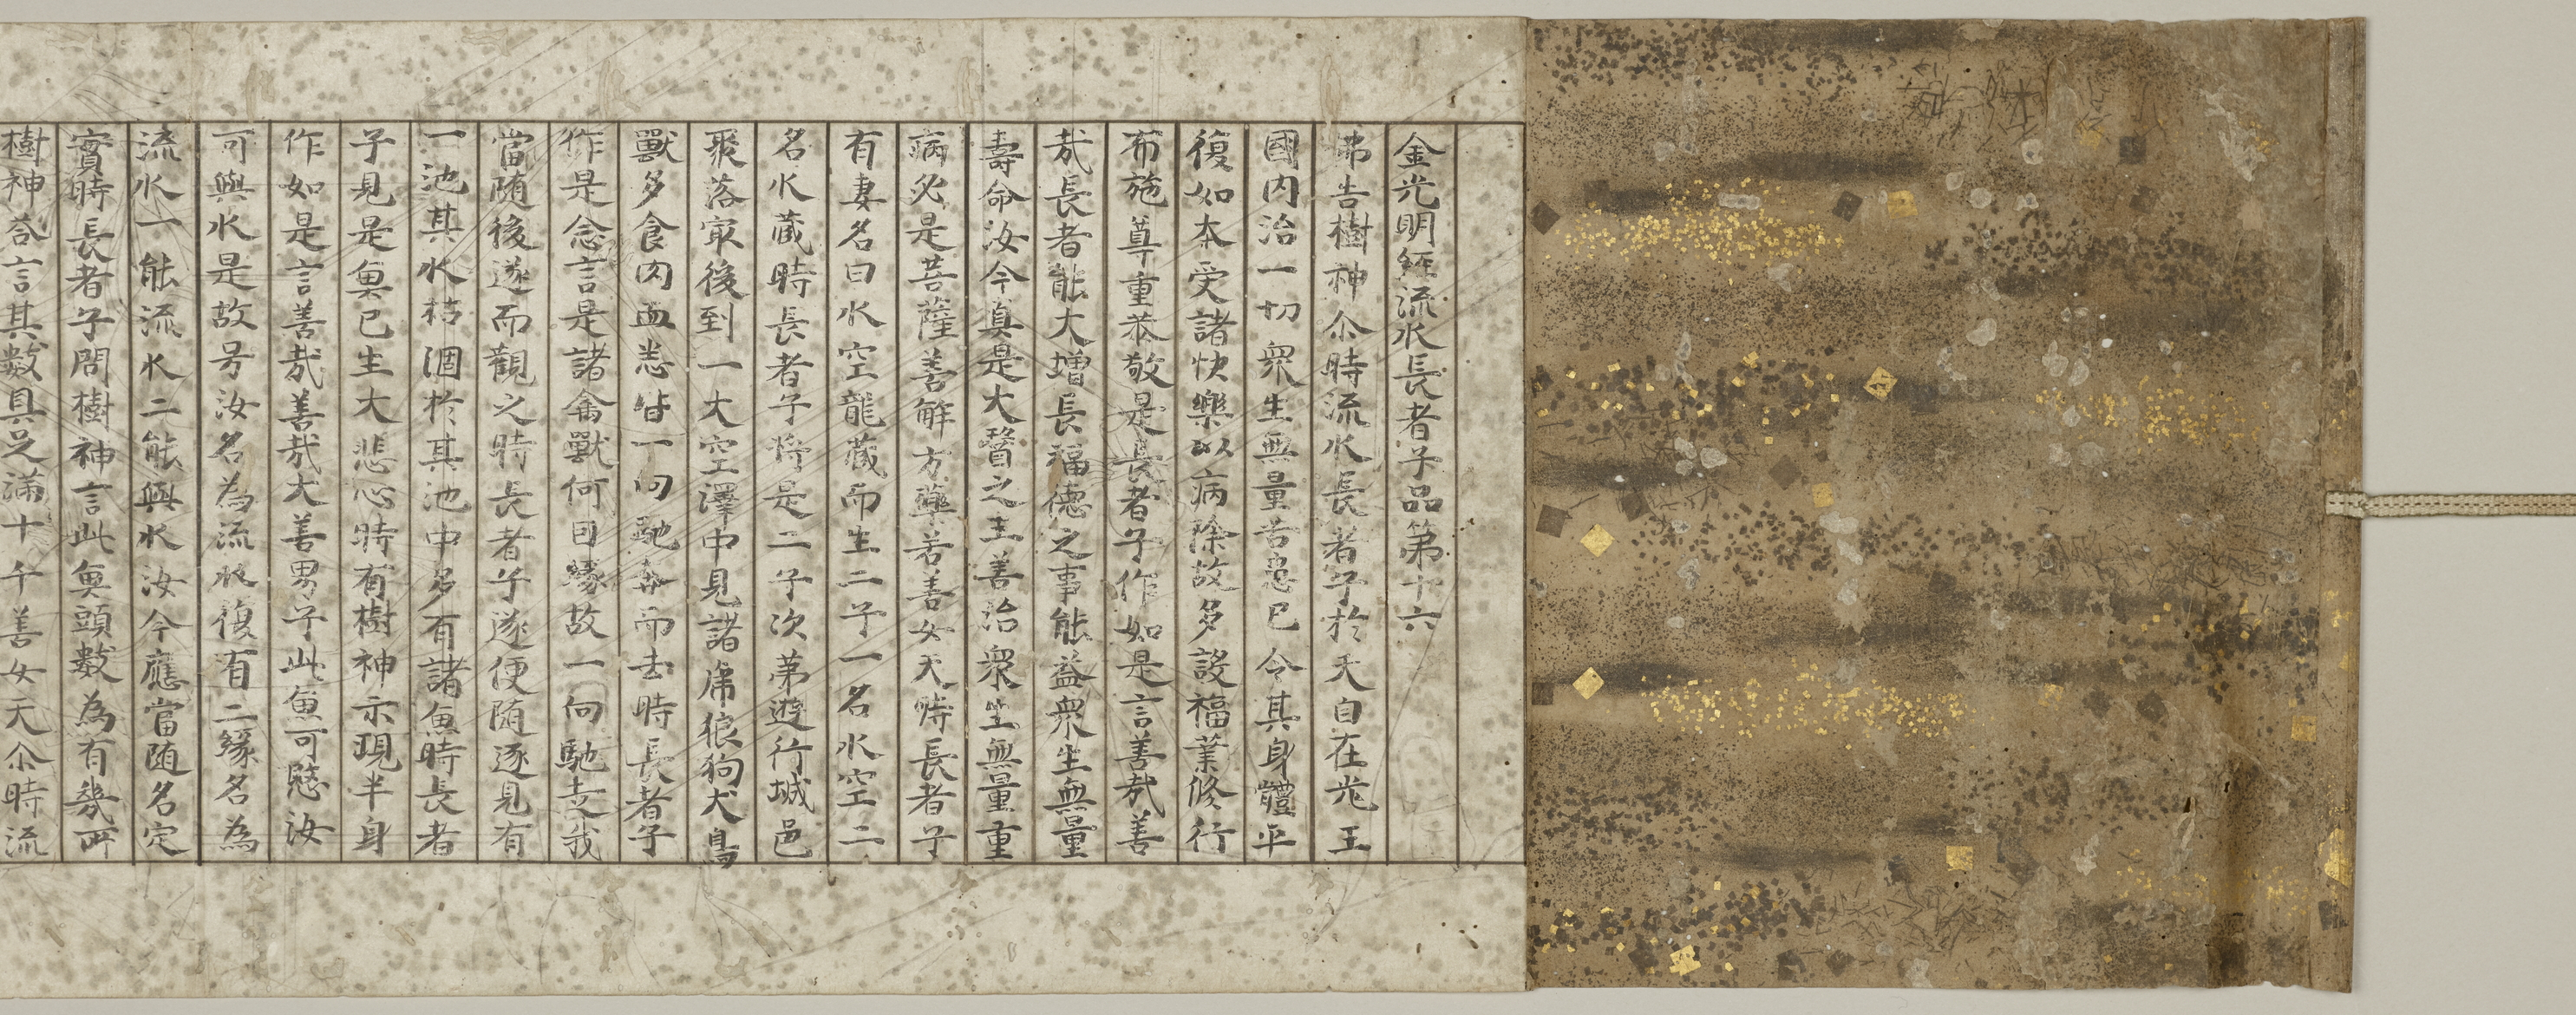 金光明經流水長者子品第十六
佛告樹神尒時流水長者子於天自在光王
國内治一切衆生無量苦患已令其身體平
復如本受諸快樂以病除故多設福業修行
布施尊重恭敬是長者子作如是言善哉善
哉長者能大増長福德之事能益衆生無量
壽命汝今真是大醫之王善治衆生無量重
病必是菩薩善解方藥善女天時長者子
有妻名曰水空龍藏而生二子一名水空二
名水藏時長者子將是二子次第遊行城邑
聚落㝡後到一大空澤中見諸虎狼狗犬鳥
獸多食肉血悉皆一向馳奔而去時長者子
作是念言是諸禽獸何因緣故一向馳走我
當随後遂而觀之時長者子遂便随逐見有
一池其水枯涸於其池中多有諸魚時長者
子見是魚已生大悲心時有樹神示現半身
作如是言善哉善哉大善男子此魚可愍汝
可與水是故号汝名為流水復有二緣名為
流水一能流水二能與水汝今應當随名定
實時長者子問樹神言此魚頭數為有幾所
樹神荅言其數具足滿十千善女天尒時流